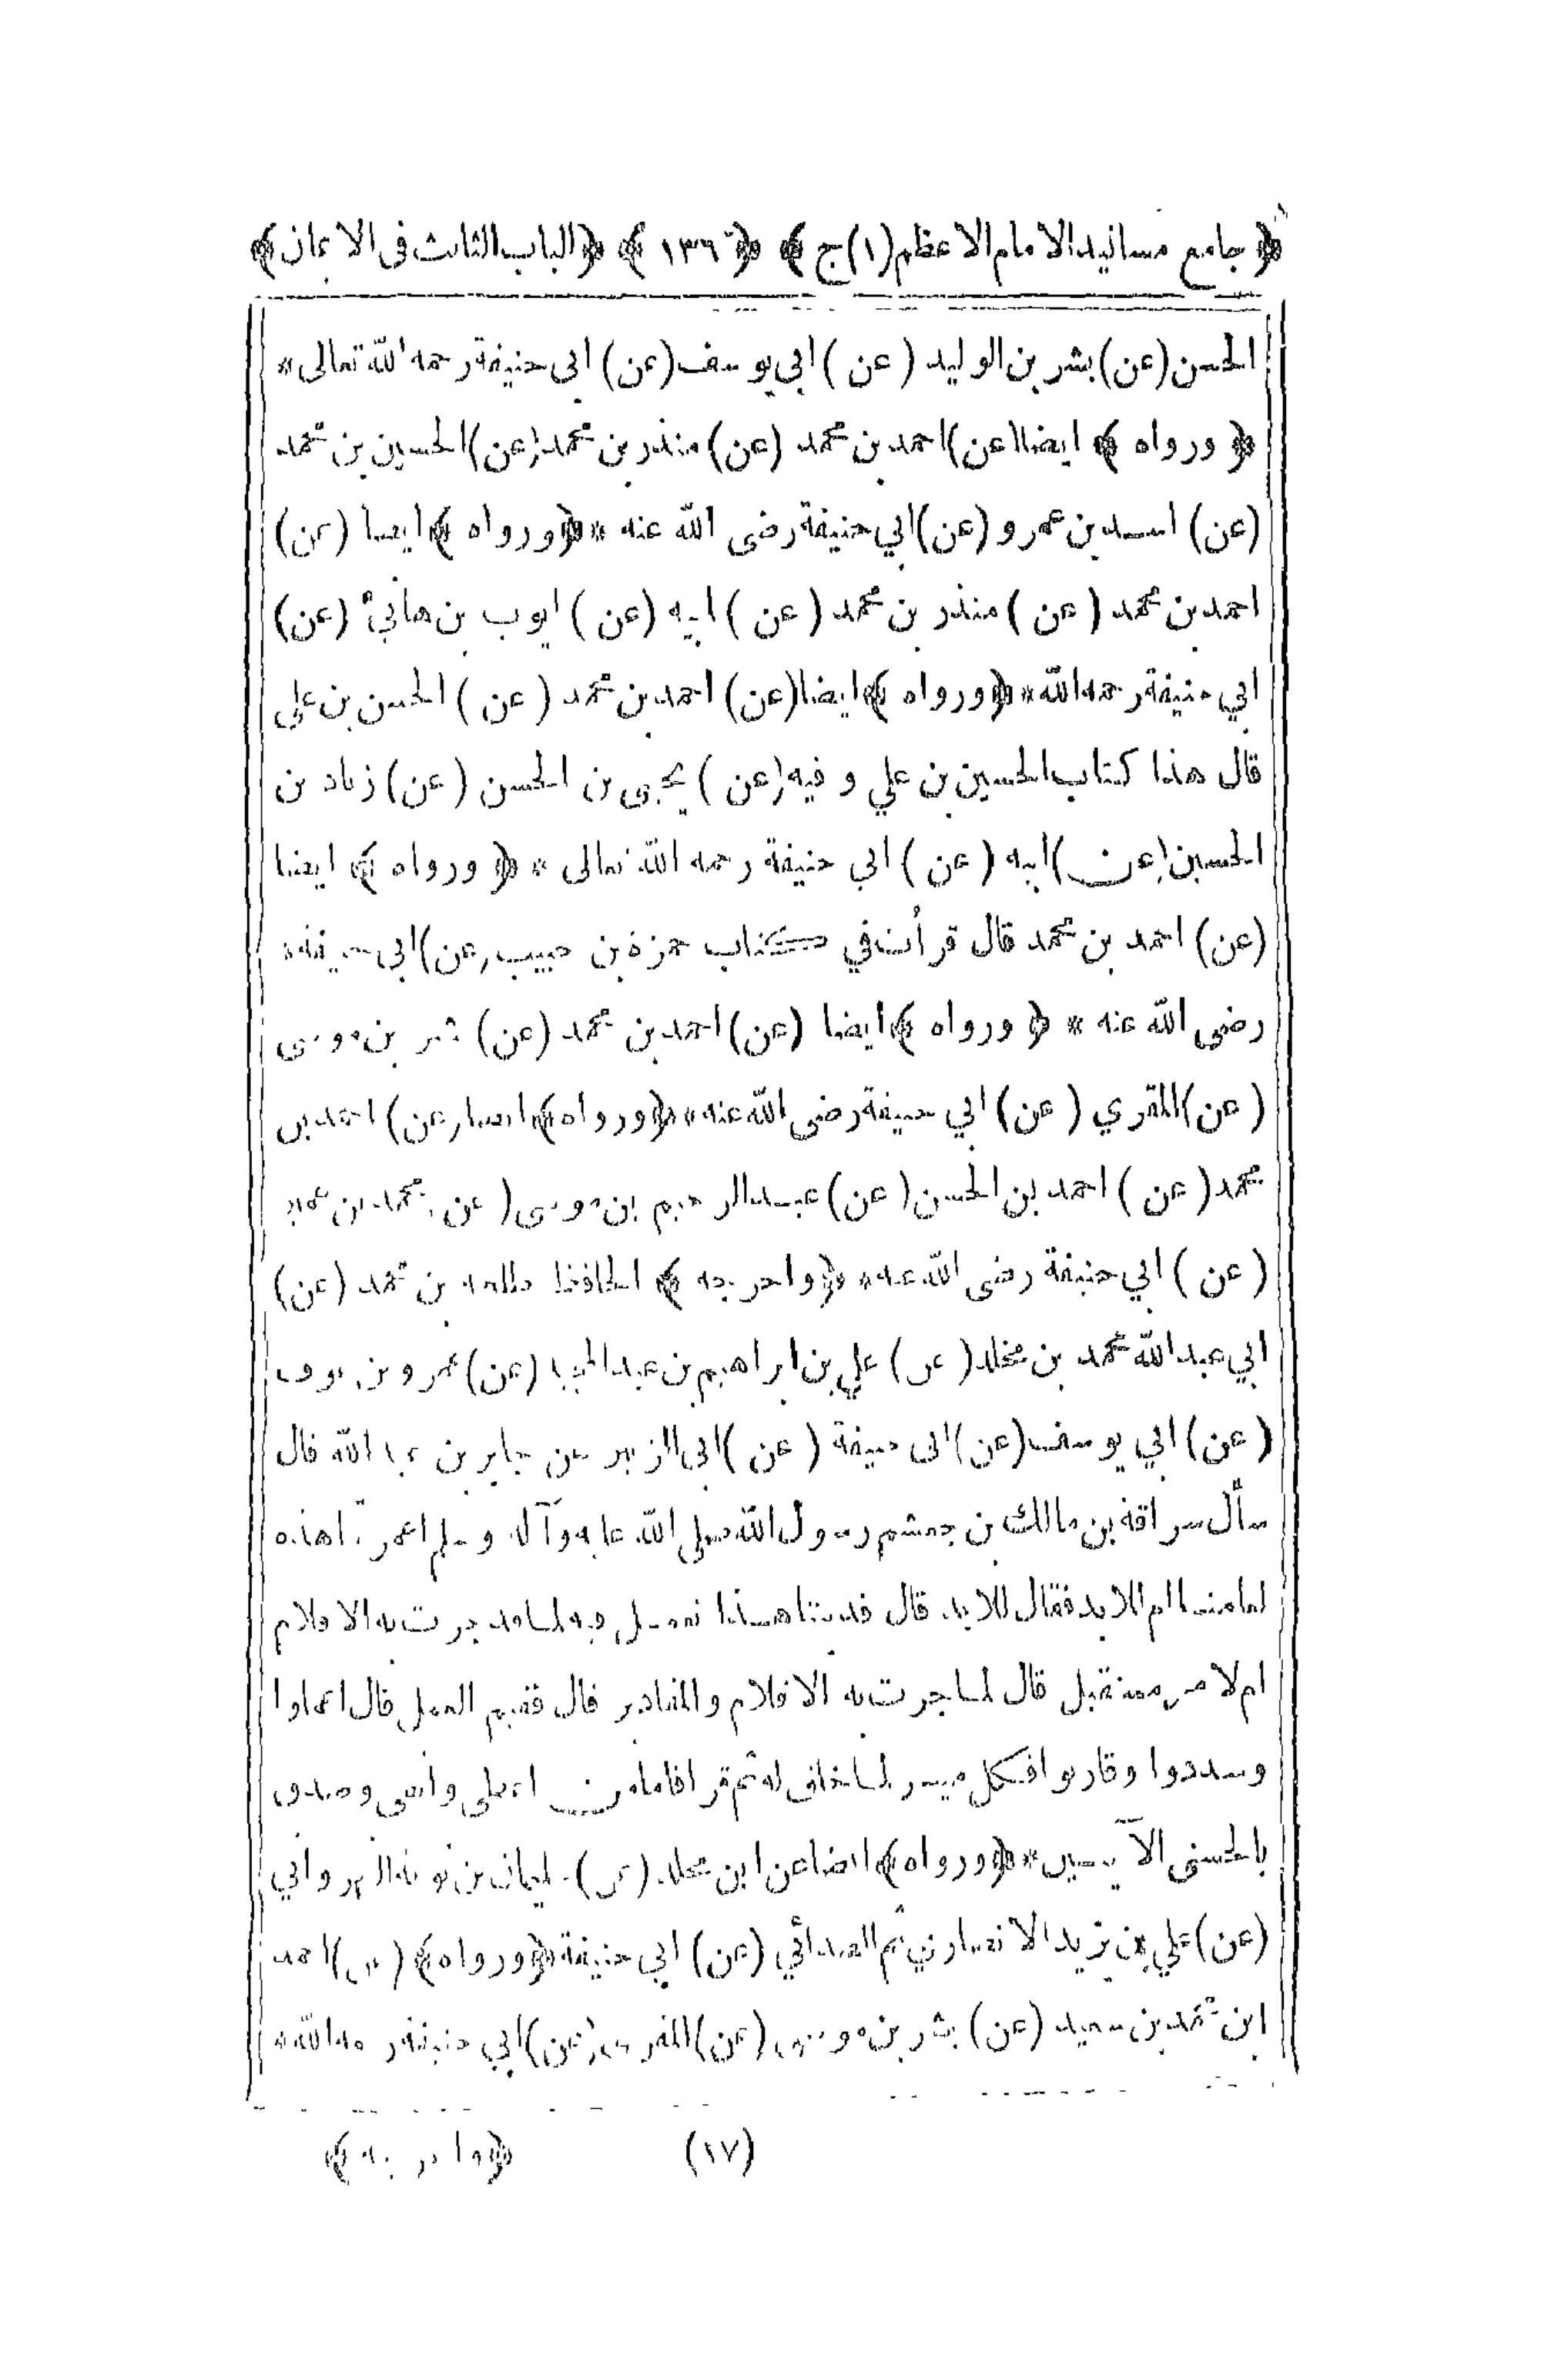 ﴿ جامع مسانيد الامام الاعظم (١) ج ﴾ ﴿ ١٣٦ ﴾ ﴿ الباب الثالث فى الايمان ﴾
الحسن (عن) بشر بن الوليد (عن) ابي يوسف (عن) ابى حنيفة رحمه الله تعالى *
﴿ ورواه ﴾ ايضا (عن) احمد بن محمد (عن) منذر بن محمد (عن) الحسين بن محمد
(عن) اسد بن عمرو (عن) ابي حنيفة رضى الله عنه * ﴿ ورواه ﴾ ايضا (عن)
احمد بن محمد (عن) منذر بن محمد (عن) ابيه (عن) ايوب بن هانىٔ (عن)
ابي حنيفة رحمه الله * ﴿ ورواه ﴾ ايضا (عن) احمد بن محمد (عن) الحسن بن علي
قال هذا كتاب الحسين بن علي و فيه (عن) يحيى بن الحسن (عن) زياد بن
الحسين (عن) ابيه (عن) ابي حنيفة رحمه الله تعالى * ﴿ ورواه ﴾ ايضا
(عن) احمد بن محمد قال قرأت في كتاب حمزة بن حبيب (عن) ابى حنيفة
رضى الله عنه * ﴿ ورواه ﴾ ايضا (عن) احمد بن محمد (عن) بشر بن موسى
(عن) المقري (عن) ابي حنيفة رضى الله عنه * ﴿ ورواه ﴾ ايضا (عن) احمد بن
محمد (عن) احمد بن الحسن (عن) عبد الرحيم بن موسى (عن) محمد بن
(عن) ابي حنيفة رضى الله عنه * ﴿ واخرجه ﴾ الحافظ طلحة بن محمد (عن)
ابي عبد الله محمد بن مخلد (عن) علي بن ابراهيم بن عبد (عن) عمرو بن
(عن) ابي يوسف (عن) ابى حنيفة (عن) ابى الزبير عن جابر بن عبد الله قال
سأل سراقة بن مالك بن جعشم رسول الله صلى الله عليه وآله وسلم اعمرتنا هذه
لعامنا ام للابد فقال للابد قال فديننا هذا نعمل فيه لما قد جرت به الاقلام
ام لامر مستقبل قال لما جرت به الاقلام والمقادير قال ففيم العمل قال اعملوا
وسددوا وقاربوا فكل ميسر لما خلق له ثم قرأ فاما من اعطى واتقى وصدق
بالحسنى الآيتين * ﴿ ورواه ﴾ ايضا عن ابن مخلد (عن) سليمان بن توبة النهرواني
(عن) علي بن يزيد الانصاري ثم الصدائي (عن) ابي حنيفة ﴿ ورواه ﴾ (عن) احمد
ابن محمد بن سعيد (عن) بشر بن موسى (عن) المقري (عن) ابي حنيفة رحمه الله *
(١٧) ﴿ واخرجه ﴾